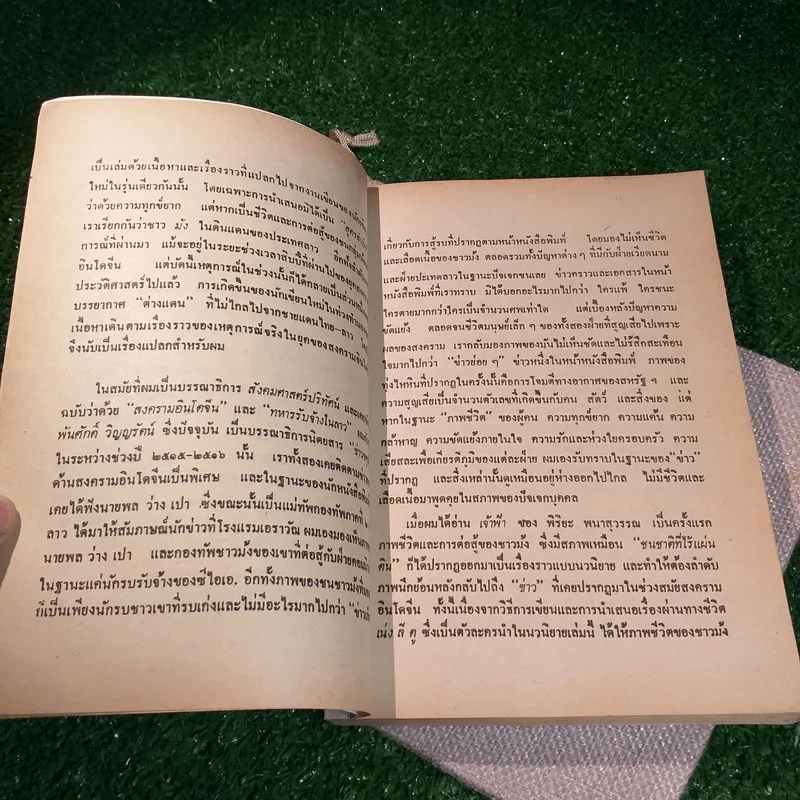 เป็นเล่มด้วยเนื้อหาและเรื่องราวที่แปลกไปจากงานเขียนของ
ใหม่ในรุ่นเดียวกันนั้น โดยเฉพาะการนำเสนอมิได้เป็น
ว่าด้วยความทุกข์ยาก แต่หากเป็นชีวิตและการต่อสู้ของ
เราเรียกกันว่าชาว ม้ง ในดินแดนของประเทศลาว อีกทั้ง
การณ์ที่ผ่านมา แม้จะอยู่ในระยะช่วงเวลาสิบปีที่ผ่านไปของ
อินโดจีน แต่บัดนี้เหตุการณ์ในช่วงนั้นก็ได้กลายเป็นส่วน
ประวัติศาสตร์ไปแล้ว การเกิดขึ้นของนักเขียนใหม่ในท่วงทำนอง
บรรยากาศ "ต่างแดน" ที่ไม่ไกลไปจากชายแดนไทย-ลาว
เนื้อหาเดินตามเรื่องราวของเหตุการณ์จริงในยุคของสงครามอินโดจีน
จึงนับเป็นเรื่องแปลกสำหรับผม
ในสมัยที่ผมเป็นบรรณาธิการ สังคมศาสตร์ปริทัศน์
ฉบับว่าด้วย "สงครามอินโดจีน" และ "ทหารรับจ้างในลาว"
พันศักดิ์ วิญญรัตน์ ซึ่งปัจจุบัน เป็นบรรณาธิการนิตยสาร
ในระหว่างช่วงปี ๒๕๑๕-๒๕๑๖ นั้น เราทั้งสองเคยติดตาม
ด้านสงครามอินโดจีนเป็นพิเศษ และในฐานะของนักหนังสือพิมพ์
เคยได้ฟังนายพล ว่าง เปา ซึ่งขณะนั้นเป็นแม่ทัพกองทัพภาคที่ ๒
ลาว ได้มาให้สัมภาษณ์นักข่าวที่โรงแรมเอราวัณ ผมเองมองเห็น
นายพล ว่าง เปา และกองทัพชาวม้งของเขาที่ต่อสู้กับฝ่าย
ในฐานะแค่นักรบรับจ้างของซีไอเอ. อีกทั้งภาพของชนชาวม้ง
ก็เป็นเพียงนักรบชาวเขาที่รบเก่งและไม่มีอะไรมากไปกว่า
เกี่ยวกับการสู้รบที่ปรากฏตามหน้าหนังสือพิมพ์ โดยมองไม่เห็นชีวิต
และเลือดเนื้อของชาวม้ง ตลอดรวมทั้งปัญหาต่างๆ ที่มีกับฝ่ายเวียดนาม
และฝ่ายปะเทดลาวในฐานะปัจเจกชนเลย ข่าวคราวและเอกสารในหน้า
หนังสือพิมพ์ที่เราทราบ มิได้บอกอะไรมากไปกว่า ใครแพ้ ใครชนะ
ใครตายมากกว่าใครเป็นจำนวนศพเท่าใด แต่เบื้องหลังปัญหาความ
ขัดแย้ง ตลอดจนชีวิตมนุษย์เล็ก ๆ ของทั้งสองฝ่ายที่สูญเสียไปเพราะ
ผลของสงคราม เรากลับมองภาพของมันไม่เห็นชัดและไม่รู้สึกสะเทือน
ใจมากไปกว่า "ข่าวย่อย ๆ" ข่าวหนึ่งในหน้าหนังสือพิมพ์ ภาพของ
ทุ่งไหหินที่ปรากฏในครั้งนั้นคือการโจมตีทางอากาศของสหรัฐ ฯ และ
ความสูญเสียเป็นจำนวนตัวเลขที่เกิดขึ้นกับคน สัตว์ และสิ่งของ แต่
หาดในฐานะ "ภาพชีวิต" ของผู้คน ความทุกข์ยาก ความแค้น ความ
กล้าหาญ ความขัดแย้งภายในใจ ความรักและห่วงใยครอบครัว ความ
เสียสละเพื่อเกียรติภูมิของแต่ละฝ่าย ผมเองรับทราบในฐานะของ "ข่าว"
ที่ปรากฏ และสิ่งเหล่านั้นดูเหมือนอยู่ห่างออกไปไกล ไม่มีชีวิตและ
เลือดเนื้อมาพูดคุยในสภาพของปัจเจกบุคคล
เมื่อผมได้อ่าน เจ้าฟ้า ของ พิริยะ พนาสุวรรณ เป็นครั้งแรก
ภาพชีวิตและการต่อสู้ของชาวม้ง ซึ่งมีสภาพเหมือน "ชนชาติที่ไร้แผ่น
ดิน" ก็ได้ปรากฏออกมาเป็นเรื่องราวแบบนวนิยาย และทำให้ต้องลำดับ
ภาพนึกย้อนหลังกลับไปถึง "ข่าว" ที่เคยปรากฏมาในช่วงสมัยสงคราม
อินโดจีน ทั้งนี้เนื่องจากวิธีการเขียนและการนำเสนอเรื่องผ่านทางชีวิต
เน่ง ลี ตู ซึ่งเป็นตัวละครนำในนวนิยายเล่มนี้ ได้ให้ภาพชีวิตของชาวม้ง